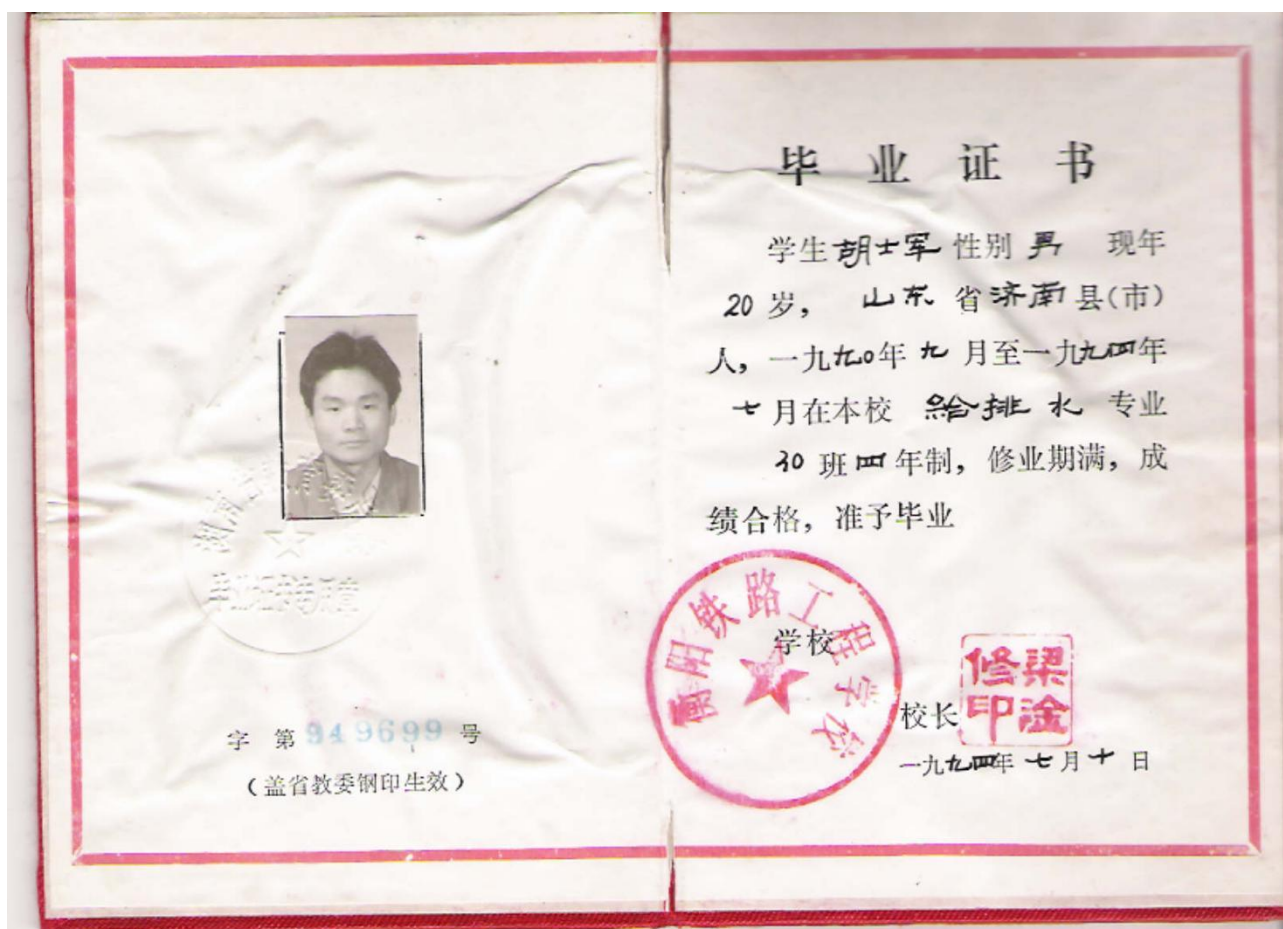 字 第 949699 号
(盖省教委钢印生效)
毕业证书
学生胡士军性别 男 现年
20 岁, 山东 省济南县(市)
人, 一九九〇年 九 月至一九九四年
七月在本校 给排水 专业
30 班四年制, 修业期满, 成
绩合格, 准予毕业
衡阳铁路工程学校
学校
校长
梁淦修印
一九九四年 七 月 十 日